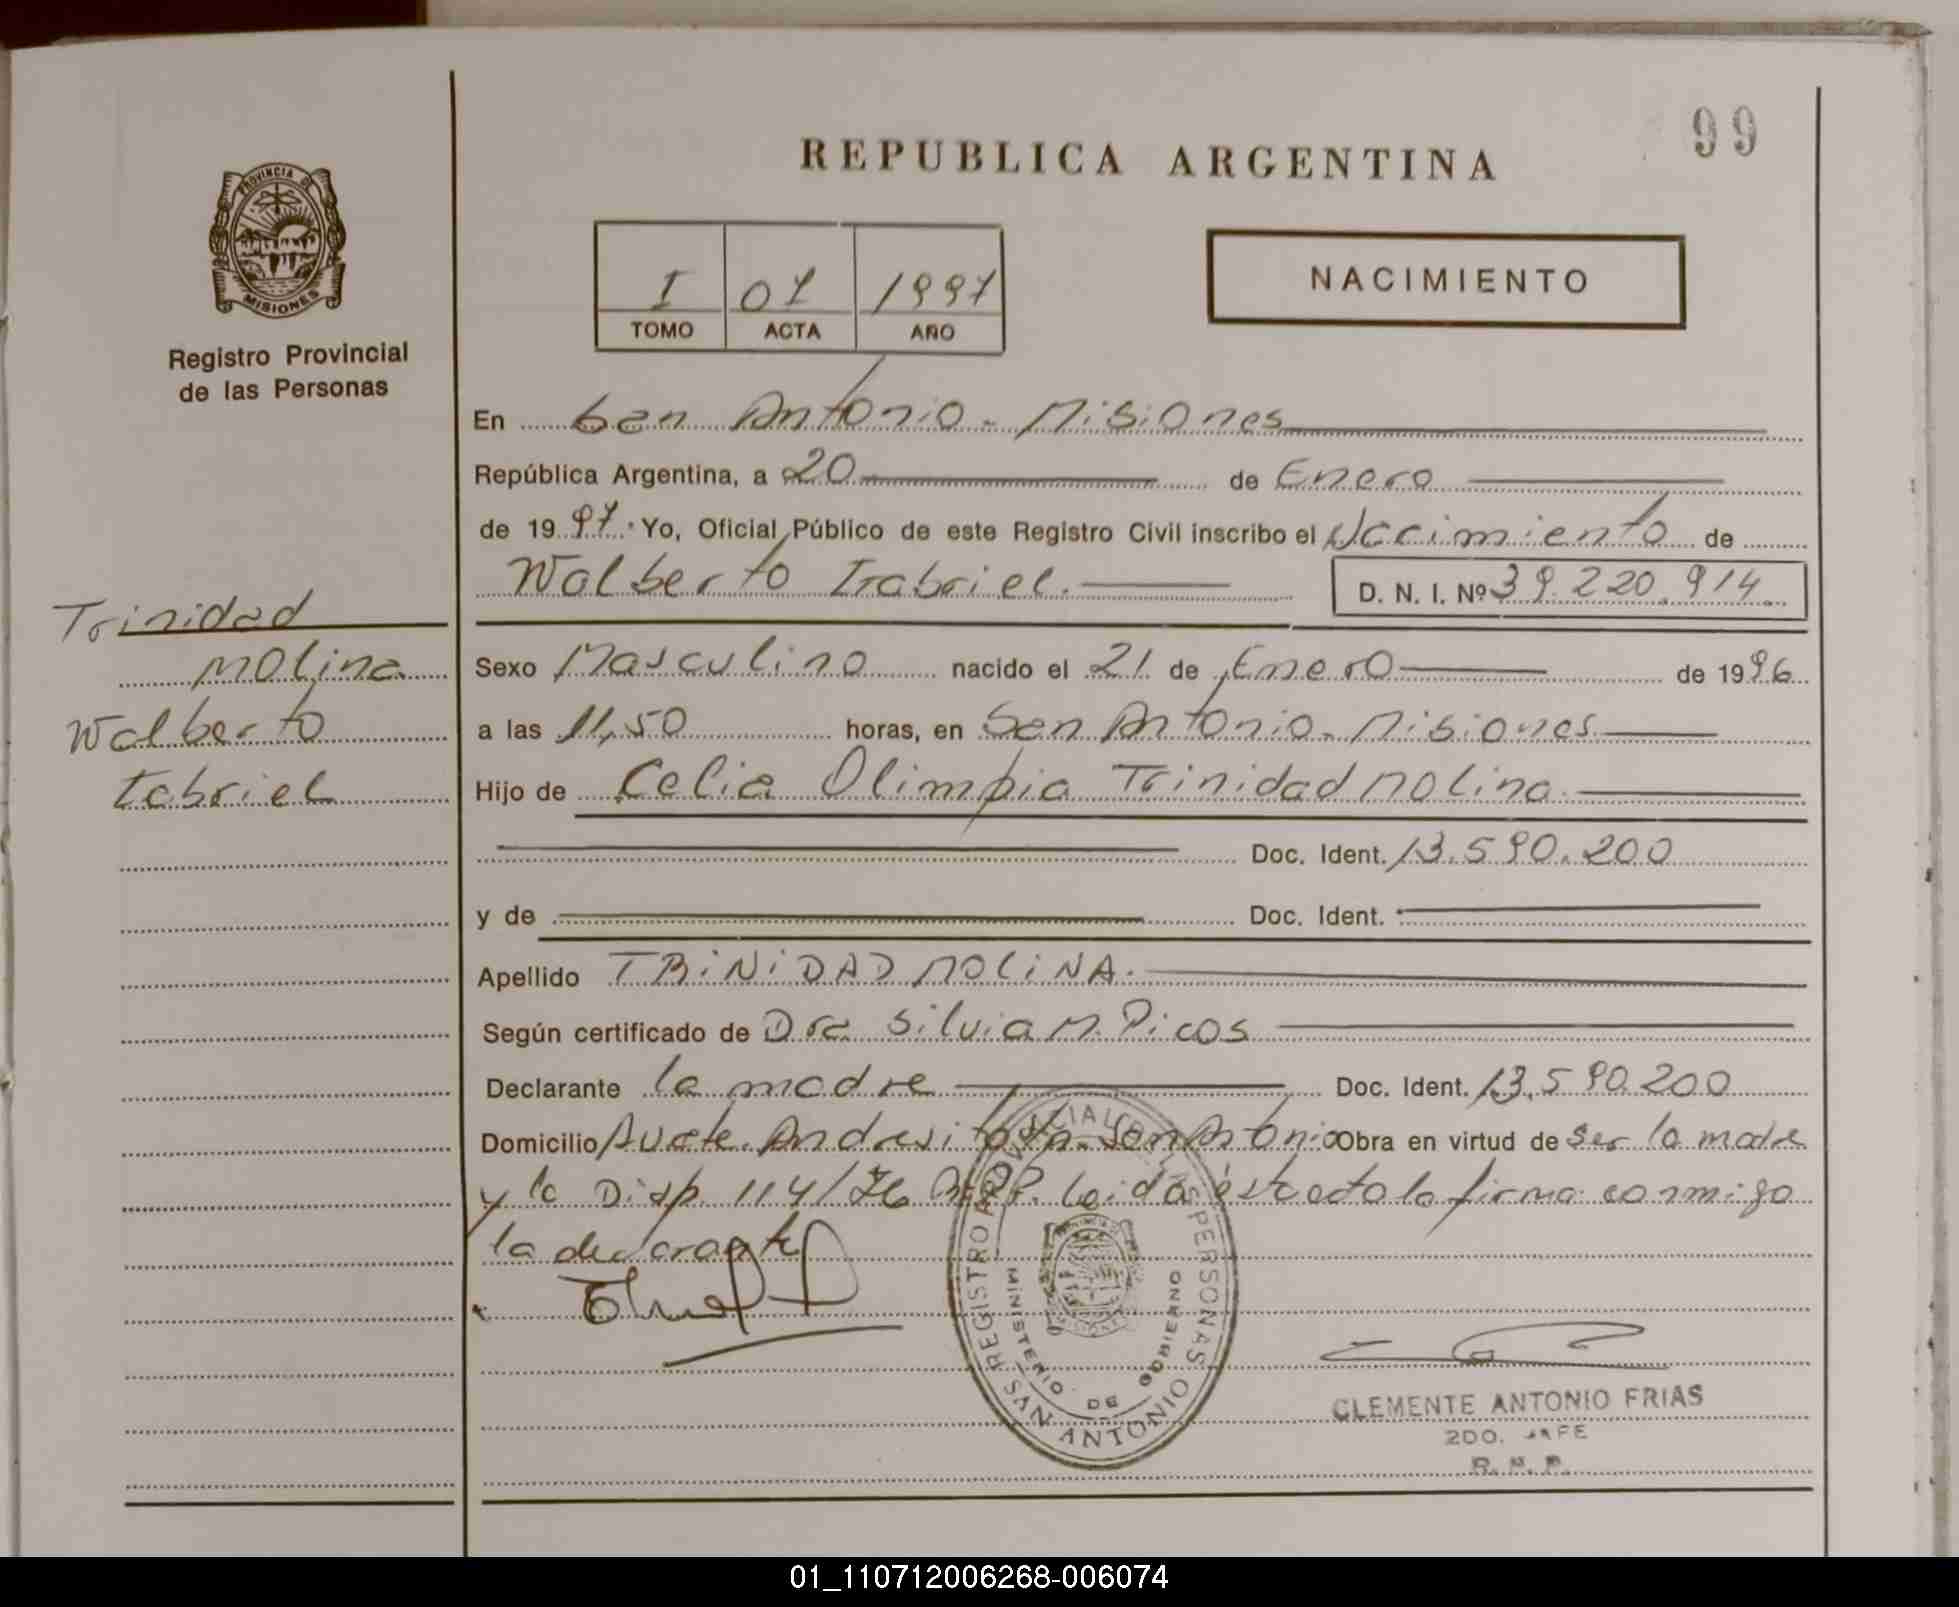 99
REPUBLICA ARGENTINA
PROVINCIA DE MISIONES
Registro Provincial
de las Personas
I 07 1997
TOMO ACTA AÑO
NACIMIENTO
En San Antonio - Misiones
República Argentina, a 20 de Enero
de 1997. Yo, Oficial Público de este Registro Civil inscribo el Nacimiento de
Walberto Gabriel. D. N. I. Nº 39.220.914.
Trinidad
Molina
Walberto
Gabriel
Sexo Masculino nacido el 21 de Enero de 1996
a las 11,50 horas, en San Antonio - Misiones
Hijo de Celia Olimpia Trinidad Molina
Doc. Ident. 13.590.200
y de Doc. Ident.
Apellido TRINIDAD MOLINA.
Según certificado de Dra Silvia M. Picos
Declarante la madre Doc. Ident. 13.590.200
Domicilio Avate. Andresito San Antonio Obra en virtud de ser la madre
y la Disp. 114/76 Leida ésta acta la firma conmigo
la declarante
REGISTRO PROVINCIAL DE LAS PERSONAS
MINISTERIO DE GOBIERNO
SAN ANTONIO
CLEMENTE ANTONIO FRIAS
2DO. JEFE
R. P. P.
01_110712006268-006074